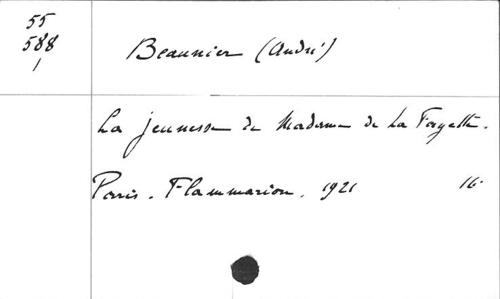 55
588
1
Beaunier (André)
La jeunesse de Madame de La Fayette.
Paris. Flammarion. 1921 16.